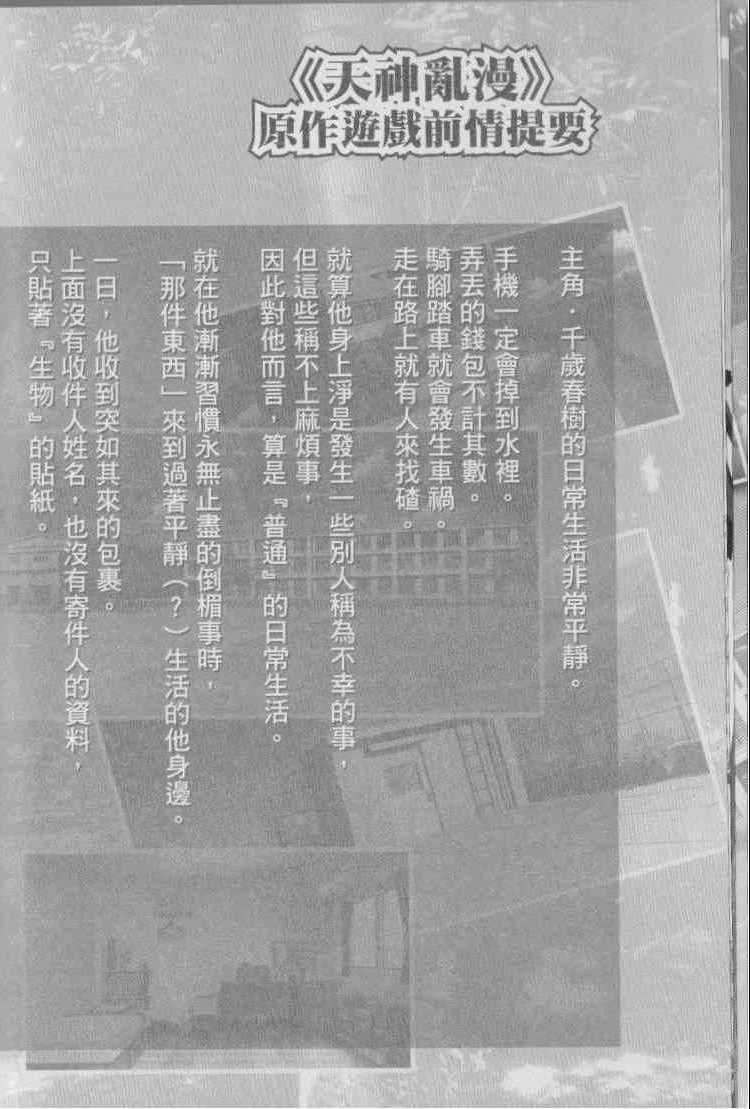 《天神亂漫》
原作遊戲前情提要
主角．千歲春樹的日常生活非常平靜。
手機一定會掉到水裡。
弄丟的錢包不計其數。
騎腳踏車就會發生車禍。
走在路上就有人來找碴。
就算他身上淨是發生一些別人稱為不幸的事，
但這些稱不上麻煩事，
因此對他而言，算是『普通』的日常生活。
就在他漸漸習慣永無止盡的倒楣事時，
「那件東西」來到過著平靜（？）生活的他身邊。
一日，他收到突如其來的包裹。
上面沒有收件人姓名，也沒有寄件人的資料，
只貼著『生物』的貼紙。